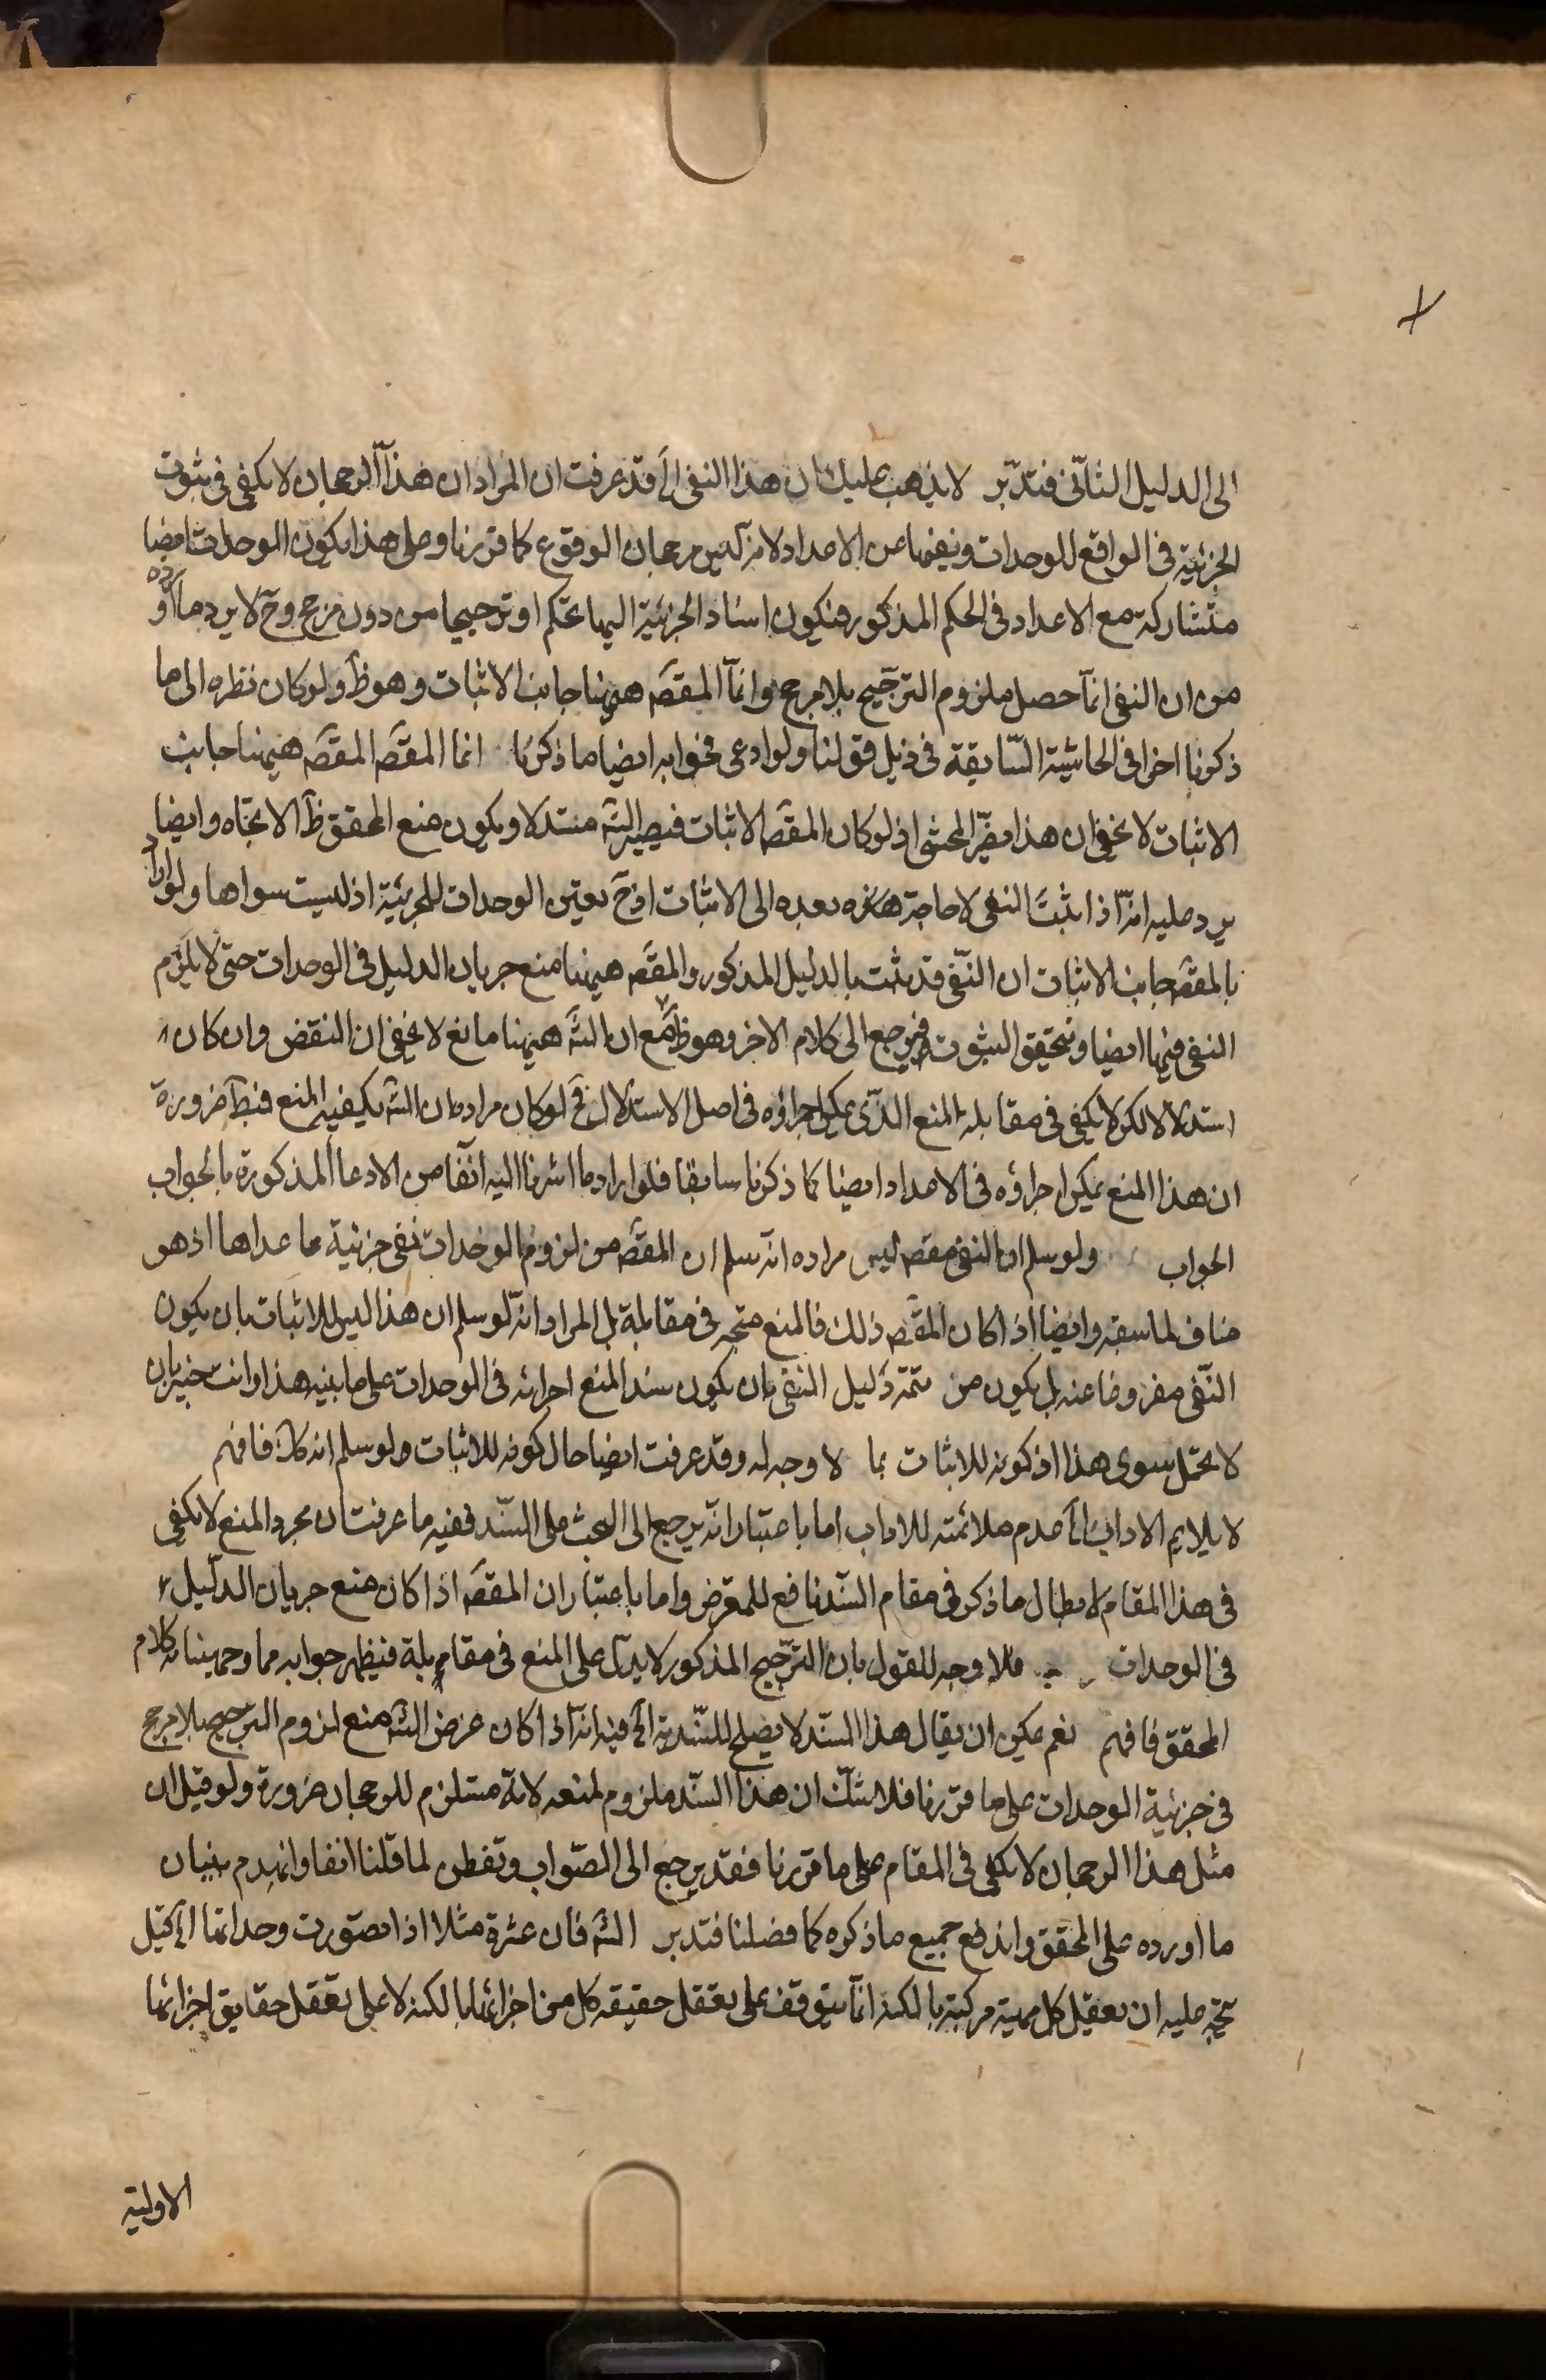 الى الدليل الثانى فتدبر لا يذهب عليك ان هذا النفى الخ قد عرفت ان المراد ان هذا الرجحان لا يكفى فى ثبوت
الجزئية فى الواقع للوحدات ونفيها عن الاعداد لا مرجحان الوقوع كما قررنا وعلى هذا يكون الوحدات ايضا
متشاركة مع الاعداد فى الحكم المذكور فيكون اسناد الجزئية اليها تحكم او ترجيحا من دون مرجح وح لا يرد ما اورده
من ان النفى انما حصل بلزوم الترجيح بلا مرجح وانما المقصَ ههنا جانب الاثبات وهو ظَ ولو كان نظره الى ما
ذكرنا اخرا فى الحاشية السابقة فى ذيل قولنا ولو ادعى فجوابه ايضا ما ذكرنا انما المقصَ المقصَ ههنا جانب
الاثبات لا يخفى ان هذا يضر المحشى اذ لو كان المقصَ الاثبات فيصير الشَ مستدلا ويكون منع المحقق ظَ الاتجاه وايضا
يرد عليه انه اذا ثبت النفى لا حاجة بعده الى الاثبات اذ ح تعين الوحدات للجزئية اذ ليست سواها ولو اراد
بالمقصَ جانب الاثبات ان النفى قد يثبت بالدليل المذكور والمقصَ ههنا منع جريان الدليل فى الوحدات حتى لا يلزم
النفى فيها ايضا ويتحقق الثبوت فيرجع الى كلام الاخر وهو ظَ مع ان الشَ ههنا مانع لا يخفى ان النقض وان كان
استدلالا لكن لا يكفى فى مقابلة المنع الذى يمكن اجراؤه فى اصل الاستدلال فح لو كان مراده ان الشَ يكفيه المنع فبطَ ضرورة
ان هذا المنع يمكن اجراؤه فى الاعداد ايضا كما ذكرنا سابقا فلو اراد ما اشرنا اليه انفا من الادعا المذكورة بالجواب
الجواب ولو سلم ان النفى مقصَ ليس مراده انه سلم ان المقصَ من لزوم الوحدات نفى جزئية ما عداها اذ هو
مناف لما سبقه وايضا اذا كان المقصَ ذلك فالمنع متجه فى مقابلة بل المراد انه لو سلم ان هذا ليس للاثبات بان يكون
النفى مفروضا عنه بل يكون من تتمة دليل النفى بان يكون سند المنع اجرائه فى الوحدات على ما بينه هذا وانت خبير بان
لا يحتمل سوى هذا اذ كونه للاثبات مما لا وجه له وقد عرفت ايضا حال كونه للاثبات ولو سلم انه كذلك فافهم
لا يلايم الاداب الخ عدم ملائمته للاداب اما باعتبار انه يرجع الى البحث على السند ففيه ما عرفت ان مجرد المنع لا يكفى
فى هذا المقام لابطال ما ذكر فى مقام السند نافع للمعترض واما باعتبار ان المقصَ اذا كان منع جريان الدليل
فى الوحدات فلا وجه للقول بان الترجيح المذكور لا يدل على المنع فى مقابلة فيظهر جوابه مما وجهنا به كلام
المحقق فافهم نعم يمكن ان يقال هذا السند لا يصلح للسندية الخ فيه انه اذا كان غرض الشَ منع لزوم الترجيح بلا مرجح
فى جزئية الوحدات على ما قررنا فلا شك ان هذا السند ملزوم لمنعه لانه مستلزم للرجحان ضرورة ولو قيل ان
مثل هذا الرجحان لا يكفى فى المقام على ما قررنا فقد يرجع الى الصواب وتفطن لما قلنا انفا وانهدم بنيان
ما اورده على المحقق واندفع جميع ما ذكره كما فصلنا فتدبر الشَ فان عشرة مثلا اذا تصورت وحداتها الخ قيل
يتجه عليه ان تعقل كل مهية مركبة بالكنه انما يتوقف على تعقل حقيقه كل من اجزائها بالكنه لا على تعقل حقايق اجزائها
الاولية